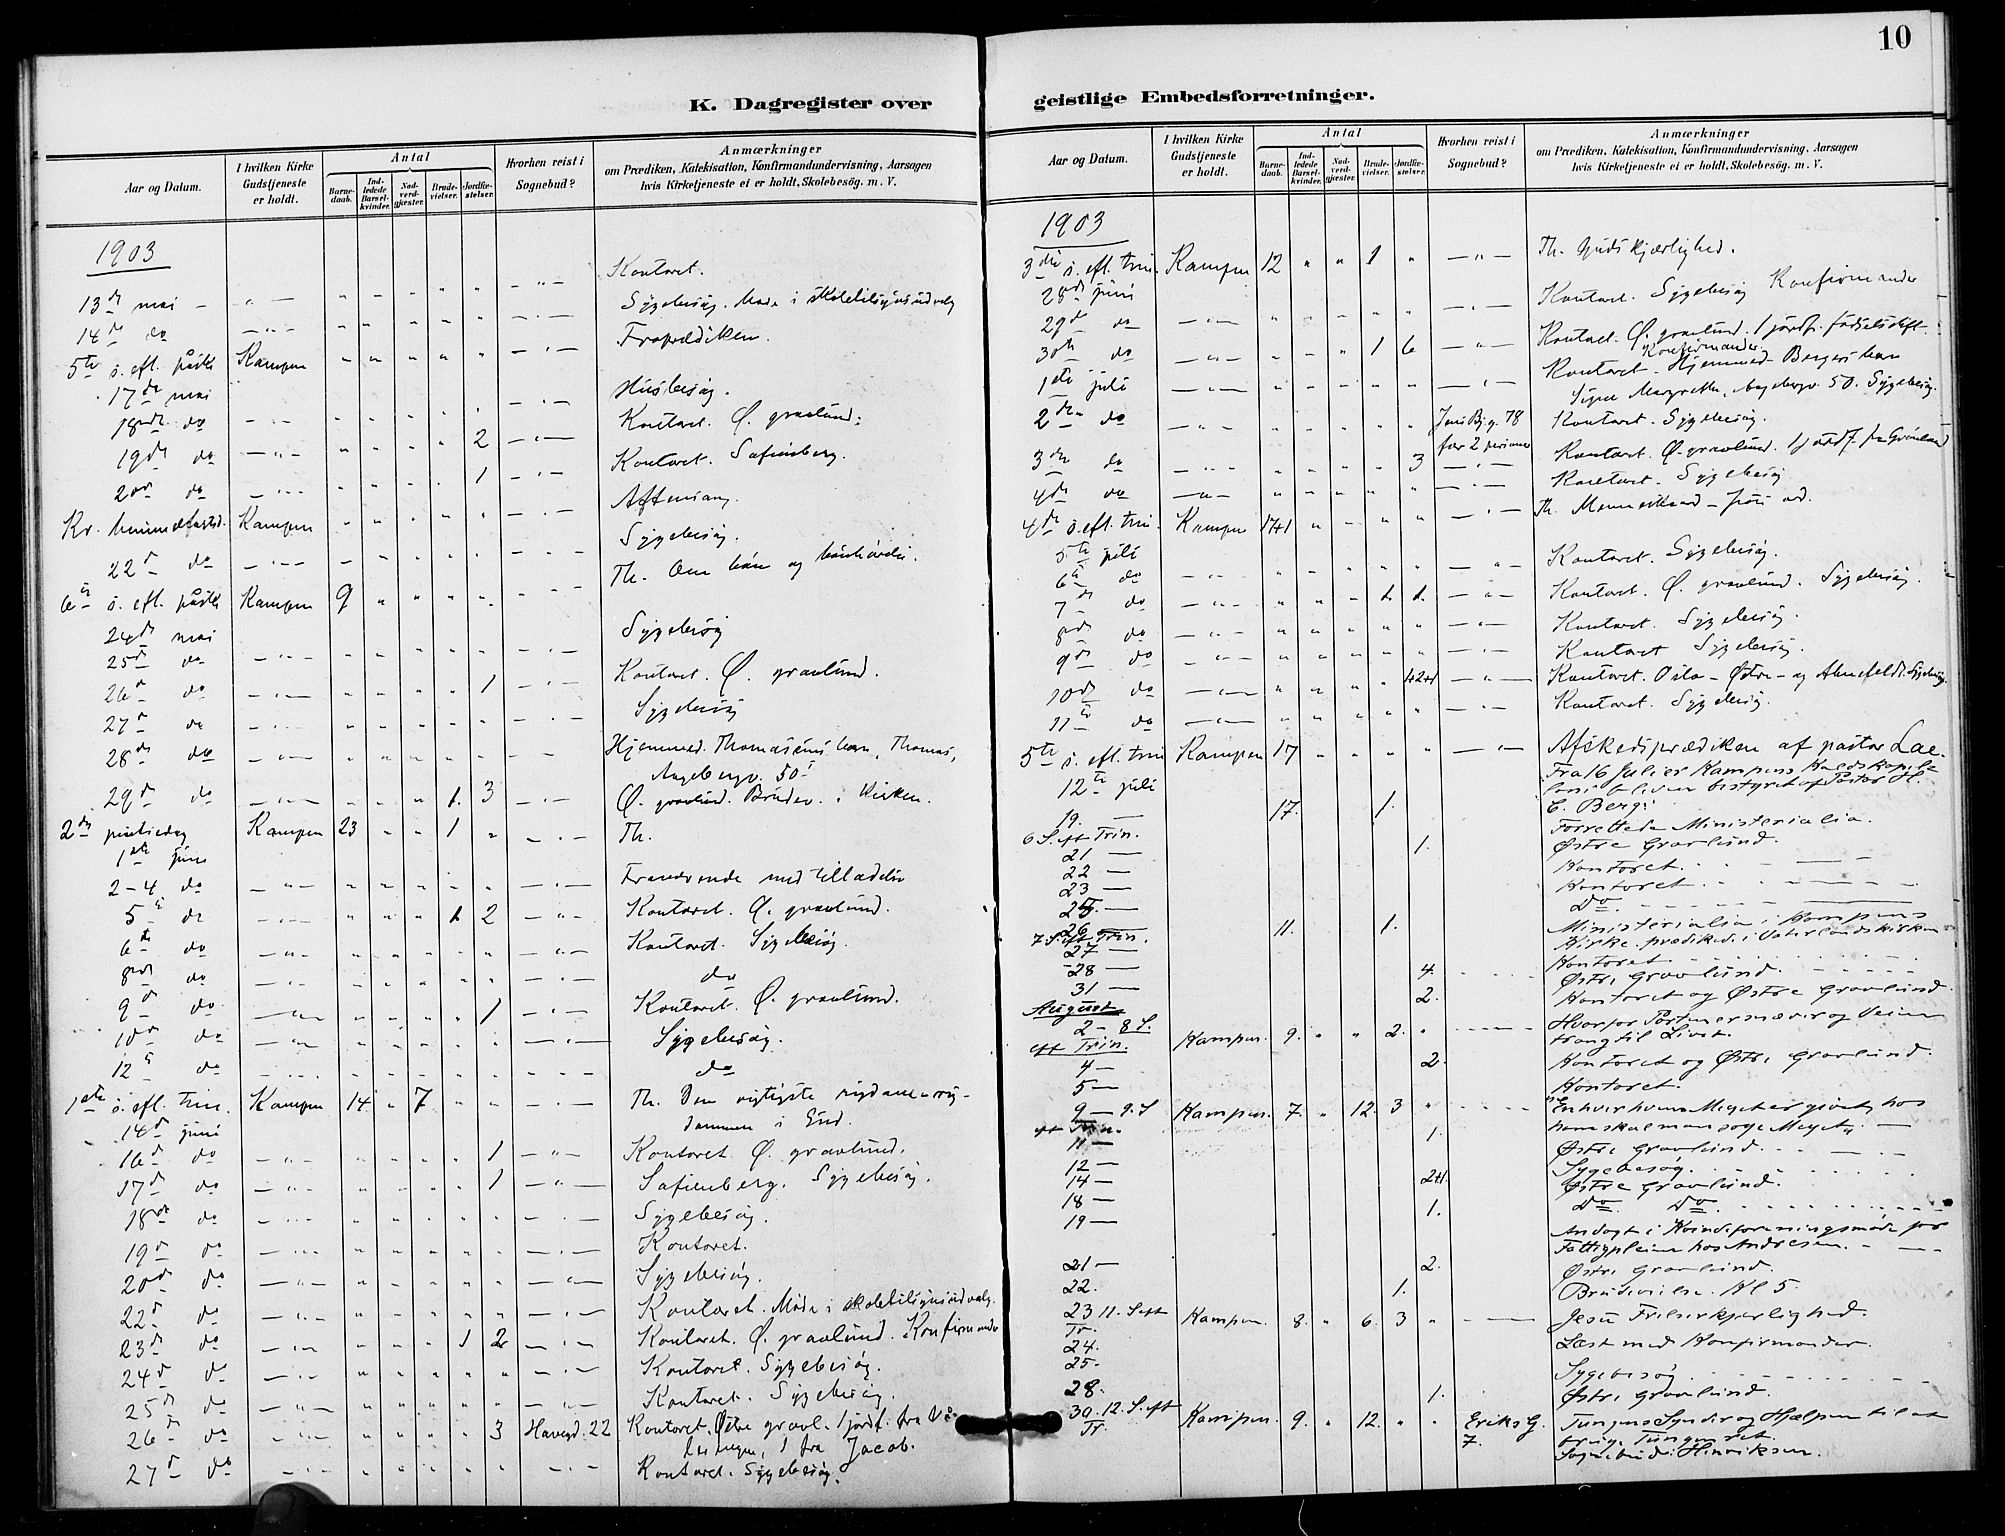 10
K. Dagregister over
geistlige Embedsforretninger.
Aar og Datum.
I hvilken Kirke Gudstjeneste er holdt.
Antal
Barnedaab.
Indledede Barselkvinder.
Nadverdgjæster.
Brudevielser.
Jordfæstelser.
Hvorhen reist i Sognebud?
Anmærkninger
om Prædiken, Katekisation, Konfirmandundervisning, Aarsagen
hvis Kirketjeneste ei er holdt, Skolebesög. m. V.
1903
Kontoret.
13de mai Sygebesøg. Møde i skoletilsynsudvalg
14de do Froprædiken.
5te s. eft. påske Kampen
17de mai Husbesøg.
18de do 2 Kontoret. Ø. gravlund.
19de do 1 Kontoret. Sofienberg.
20de do Aftensang.
Kr. himmelfartsd. Kampen Sygebesøg.
22de do Th. Om bøn og bønhørelse.
6te s. eft. påske Kampen 9
24de mai Sygebesøg
25de do
26de do 1 Kontoret. Ø. gravlund.
27de do Sygebesøg
28de do Hjemmed. Thomas,
Aagebergv. 50
29de do 1. 3 Ø. gravlund. Brudev. i Kirken.
2den pintsedag Kampen 23 1 Th.
1ste juni
2-4 do Fraværende med tilladelse
5te do 1 2 Kontoret. Ø. gravlund.
6te do Kontoret. Sygebesøg.
8de do do
9de do 1 Kontoret. Ø. gravlund.
10de do Sygebesøg.
12te do do
1ste s. eft. trin. Kampen 14 7 Th. Den vigtigste rigdom - rig-
14de juni dommen i Gud.
16de do 1 Kontoret. Ø. gravlund.
17de do 1 Sofienberg. Sygebesøg.
18de do Sygebesøg.
19de do Kontoret.
20de do Sygebesøg.
22de do Kontoret. Møde i skoletilsynsudvalg.
23de do 1 2 Kontoret. Ø. gravlund. Konfirmander
24de do Kontoret. Sygebesøg.
25de do Kontoret. Sygebesøg.
26de do 3 Havegd. 22 Kontoret. Østre gravl. 1 jordf. fra Vå-
lerengen, 1 fra Jacob.
27de do Kontoret. Sygebesøg.
Aar og Datum.
I hvilken Kirke Gudstjeneste er holdt.
Antal
Barnedaab.
Indledede Barselkvinder.
Nadverdgjæster.
Brudevielser.
Jordfæstelser.
Hvorhen reist i Sognebud?
Anmærkninger
om Prædiken, Katekisation, Konfirmandundervisning, Aarsagen
hvis Kirketjeneste ei er holdt, Skolebesög. m. V.
1903
3die s. eft. trin. Kampen 12 1 Th. Guds kjærlighed.
28de juni
29de do Kontoret. Sygebesøg Konfirmander
30te do 1 6 Kontoret. Ø. gravlund. 1 jordf.
Konfirmander.
1ste juli Kontoret. Hjemmed.
50. Sygebesøg.
2den do Jens Bj. g. 78 Kontoret. Sygebesøg.
for 2 personer
3die do 3 Kontoret. Ø. gravlund. 1 jordf. fra Grønland
4de do Kontoret. Sygebesøg
4de s. eft. trin. Kampen 17+1 Th.
5te juli
6te do Kontoret. Sygebesøg.
7de do 1. 1. Kontoret. Ø. gravlund. Sygebesøg.
8de do Kontoret. Sygebesøg.
9de do Kontoret Sygebesøg.
10de do Kontoret. Oslo - Østre - og Sygebesøg.
11te do Kontoret. Sygebesøg.
5te s. eft. trin Kampen 17 Afskedsprædiken af pastor
12te juli Fra 16 Juli er Kampens
bestyret af Pastor H.
C. Berg:
19. 17. 1. Forrettede Ministerialia.
6 S. eft Trin.
21 1. Østre Gravlund.
22 Kontoret.
23 Kontoret.
Do.
26 11. 1. Ministerialia i Kampens
7 S. eft Trin. Kirke. prædiked i Vaterlandskirken
27 Kontoret.
28 4. Østre Gravlund.
31 2. Kontoret og Østre Gravlund.
August
2 - 8 S. Kampen. 9. 2. Hvorfor Porten er snæver og Veien
eft Trin. trang til Livet.
4 2. Kontoret og Østre Gravlund.
5 Kontoret.
9 - 9. S Kampen. 7. 12. 3 Enhver hvem Meget er givet, hos
eft Trin. ham skal man søge Meget.
11 1. Østre Gravlund.
12 Sygebesøg.
14 2+1. Østre Gravlund.
18 1. Do. Do.
19 Andagt i Kvindeforeningsmøde for
Fattigpleien hos Andresen.
21 2. Østre Gravlund.
22. 1. Brudevielse. Kl 5.
23 11. S eft Kampen. 8. 6. 3 Jesu Frelserkjærlighed.
Tr.
24. Læst med Konfirmander.
25. Sygebesøg
28. 1. Østre Gravlund.
30. 12. S. eft Kampen. 9. 12. Eriks G. Tungens Synder og Hjælpen til at
Tr. 7. bruge Tungen ret.
Sognebud: Hinriksen.